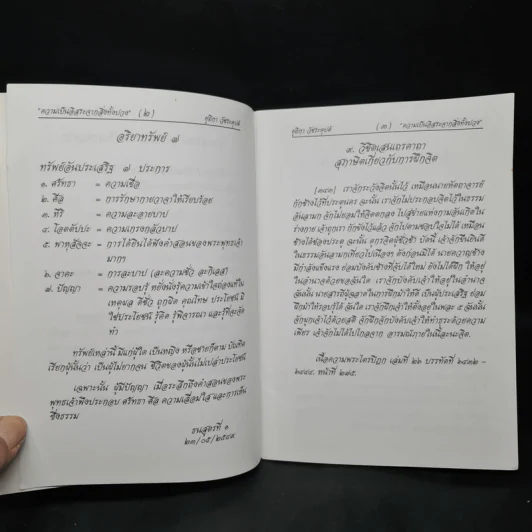 "ความเป็นอิสระจากสิ่งทั้งปวง" (๒) วัชระอุบล
อริยทรัพย์ ๗
ทรัพย์อันประเสริฐ ๗ ประการ
๑. ศรัทธา = ความเชื่อ
๒. ศีล = การรักษากายวาจาให้เรียบร้อย
๓. หิริ = ความละอายบาป
๔. โอตตัปปะ = ความเกรงกลัวบาป
๕. พาหุสัจจะ = การได้ยินได้ฟังคำสอนของพระพุทธเจ้า
มากๆ
๖. จาคะ = การสละบาป (ละความชั่ว ละกิเลส)
๗. ปัญญา = ความรอบรู้ หยั่งถึงรู้ความเข้าใจถ่องแท้ใน
เหตุผล ดีชั่ว ถูกผิด คุณโทษ ประโยชน์ มิ
ใช่ประโยชน์ รู้คิด รู้พิจารณา และรู้ที่จะจัด
ทำ
ทรัพย์เหล่านี้ มีแก่ผู้ใด เป็นหญิง หรือชายก็ตาม บัณฑิต
เรียกผู้นั้นว่า เป็นผู้ไม่ยากจน ชีวิตของผู้นั้นไม่เปล่าประโยชน์
เฉพาะนั้น ผู้มีปัญญา เมื่อระลึกถึงคำสอนของพระ
พุทธเจ้าพึงประกอบ ศรัทธา ศีล ความเลื่อมใส และการเห็น
ซึ่งธรรม
ธนสูตรที่ ๑
๒๓/๐๕/๒๕๔๙
วัชระอุบล (๓) "ความเป็นอิสระจากสิ่งทั้งปวง"
๙. วิชิตเสนเถรคาถา
สุภาษิตเกี่ยวกับการฝึกจิต
เราจักระวังจิตนั้นไว้ เหมือนนายหัตถาจารย์
กักช้างไว้ที่ประตูนคร ฉะนั้น เราจักไม่ประกอบจิตไว้ในธรรม
อันลามก จักไม่ยอมให้จิตตกลง ไปสู่ข่ายแห่งกามอันเกิดใน
ร่างกาย เจ้าถูกเรา กักขังไว้แล้ว จักไปตามชอบใจไม่ได้ เหมือน
ช้างได้ช่องประตู ฉะนั้น ดูกรจิตผู้ชั่วช้า บัดนี้ เจ้าจักขืนยินดี
ในธรรมอันลามกเที่ยวไปเนืองๆ ดังก่อนมิได้ นายควาญช้าง
มีกำลังแข็งแรง ย่อมบังคับช้างที่จับได้ใหม่ ยังไม่ได้ฝึก ให้อยู่
ในอำนาจด้วยขอฉันใด เราจักบังคับเจ้าให้อยู่ในอำนาจ
ฉันนั้น นายสารถีผู้ฉลาดในการฝึกม้าให้ดี เป็นผู้ประเสริฐ ย่อม
ฝึกม้าให้รอบรู้ได้ ฉันใด เราจักฝึกเจ้าให้ตั้งอยู่ในพละ ๕ ฉันนั้น
จักผูกเจ้าไว้ด้วยสติ จักฝึกจักบังคับเจ้าให้ทำธุระด้วยความ
เพียร เจ้าจักไม่ได้ไปไกลจาก อารมณ์ภายในนี้ละนะจิต.
เนื้อความพระไตรปิฎก เล่มที่ ๒๖